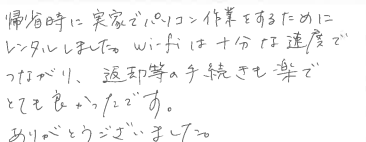 帰省時に実家でパソコン作業をするために
レンタルしました。wi-fiは十分な速度で
つながり、返却等の手続きも楽で
とても良かったです。
ありがとうございました。